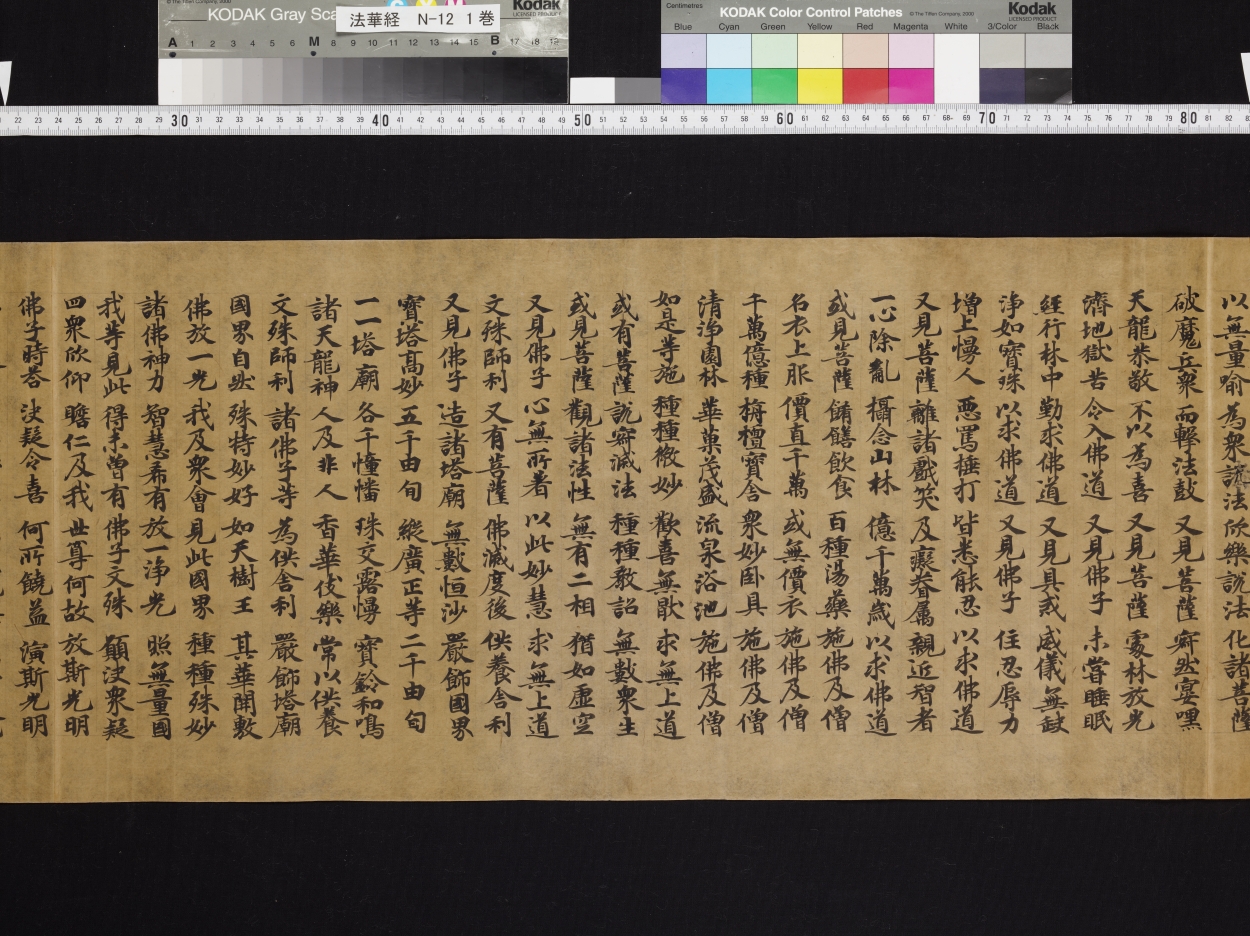 KODAK Gray Sca
© The Tiffen Company, 2000
Kodak
LICENSED PRODUCT
法華経 N-12 1巻
A 1 2 3 4 5 6 M 8 9 10 11 12 13 14 15 B 17 18 19
Centimetres
KODAK Color Control Patches
© The Tiffen Company, 2000
Kodak
LICENSED PRODUCT
Blue Cyan Green Yellow Red Magenta White 3/Color Black
22 23 24 25 26 27 28 29 30 31 32 33 34 35 36 37 38 39 40 41 42 43 44 45 46 47 48 49 50 51 52 53 54 55 56 57 58 59 60 61 62 63 64 65 66 67 68 69 70 71 72 73 74 75 76 77 78 79 80 81 82
以無量喻 為衆講法 欣樂說法 化諸菩薩
破魔兵衆 而擊法鼓 又見菩薩 寂然宴嘿
天龍恭敬 不以為喜 又見菩薩 處林放光
濟地獄苦 令入佛道 又見佛子 未甞睡眠
經行林中 勤求佛道 又見具戒 威儀無缺
淨如寶珠 以求佛道 又見佛子 住忍辱力
增上慢人 惡罵捶打 皆悉能忍 以求佛道
又見菩薩 離諸戲笑 及癡眷屬 親近智者
一心除亂 攝念山林 億千萬歲 以求佛道
或見菩薩 餚饍飲食 百種湯藥 施佛及僧
名衣上服 價直千萬 或無價衣 施佛及僧
千萬億種 栴檀寶舍 衆妙卧具 施佛及僧
清淨園林 華菓茂盛 流泉浴池 施佛及僧
如是等施 種種微妙 歡喜無猒 求無上道
或有菩薩 說寂滅法 種種教詔 無數衆生
或見菩薩 觀諸法性 無有二相 猶如虛空
又見佛子 心無所著 以此妙慧 求無上道
文殊師利 又有菩薩 佛滅度後 供養舍利
又見佛子 造諸塔廟 無數恒沙 嚴飾國界
寶塔高妙 五千由旬 縱廣正等 二千由旬
一一塔廟 各千幢幡 珠交露幔 寶鈴和鳴
諸天龍神 人及非人 香華伎樂 常以供養
文殊師利 諸佛子等 為供舍利 嚴飾塔廟
國界自然 殊特妙好 如天樹王 其華開敷
佛放一光 我及衆會 見此國界 種種殊妙
諸佛神力 智慧希有 放一淨光 照無量國
我等見此 得未曾有 佛子文殊 願決衆疑
四衆欣仰 瞻仁及我 世尊何故 放斯光明
佛子時荅 決疑令喜 何所饒益 演斯光明